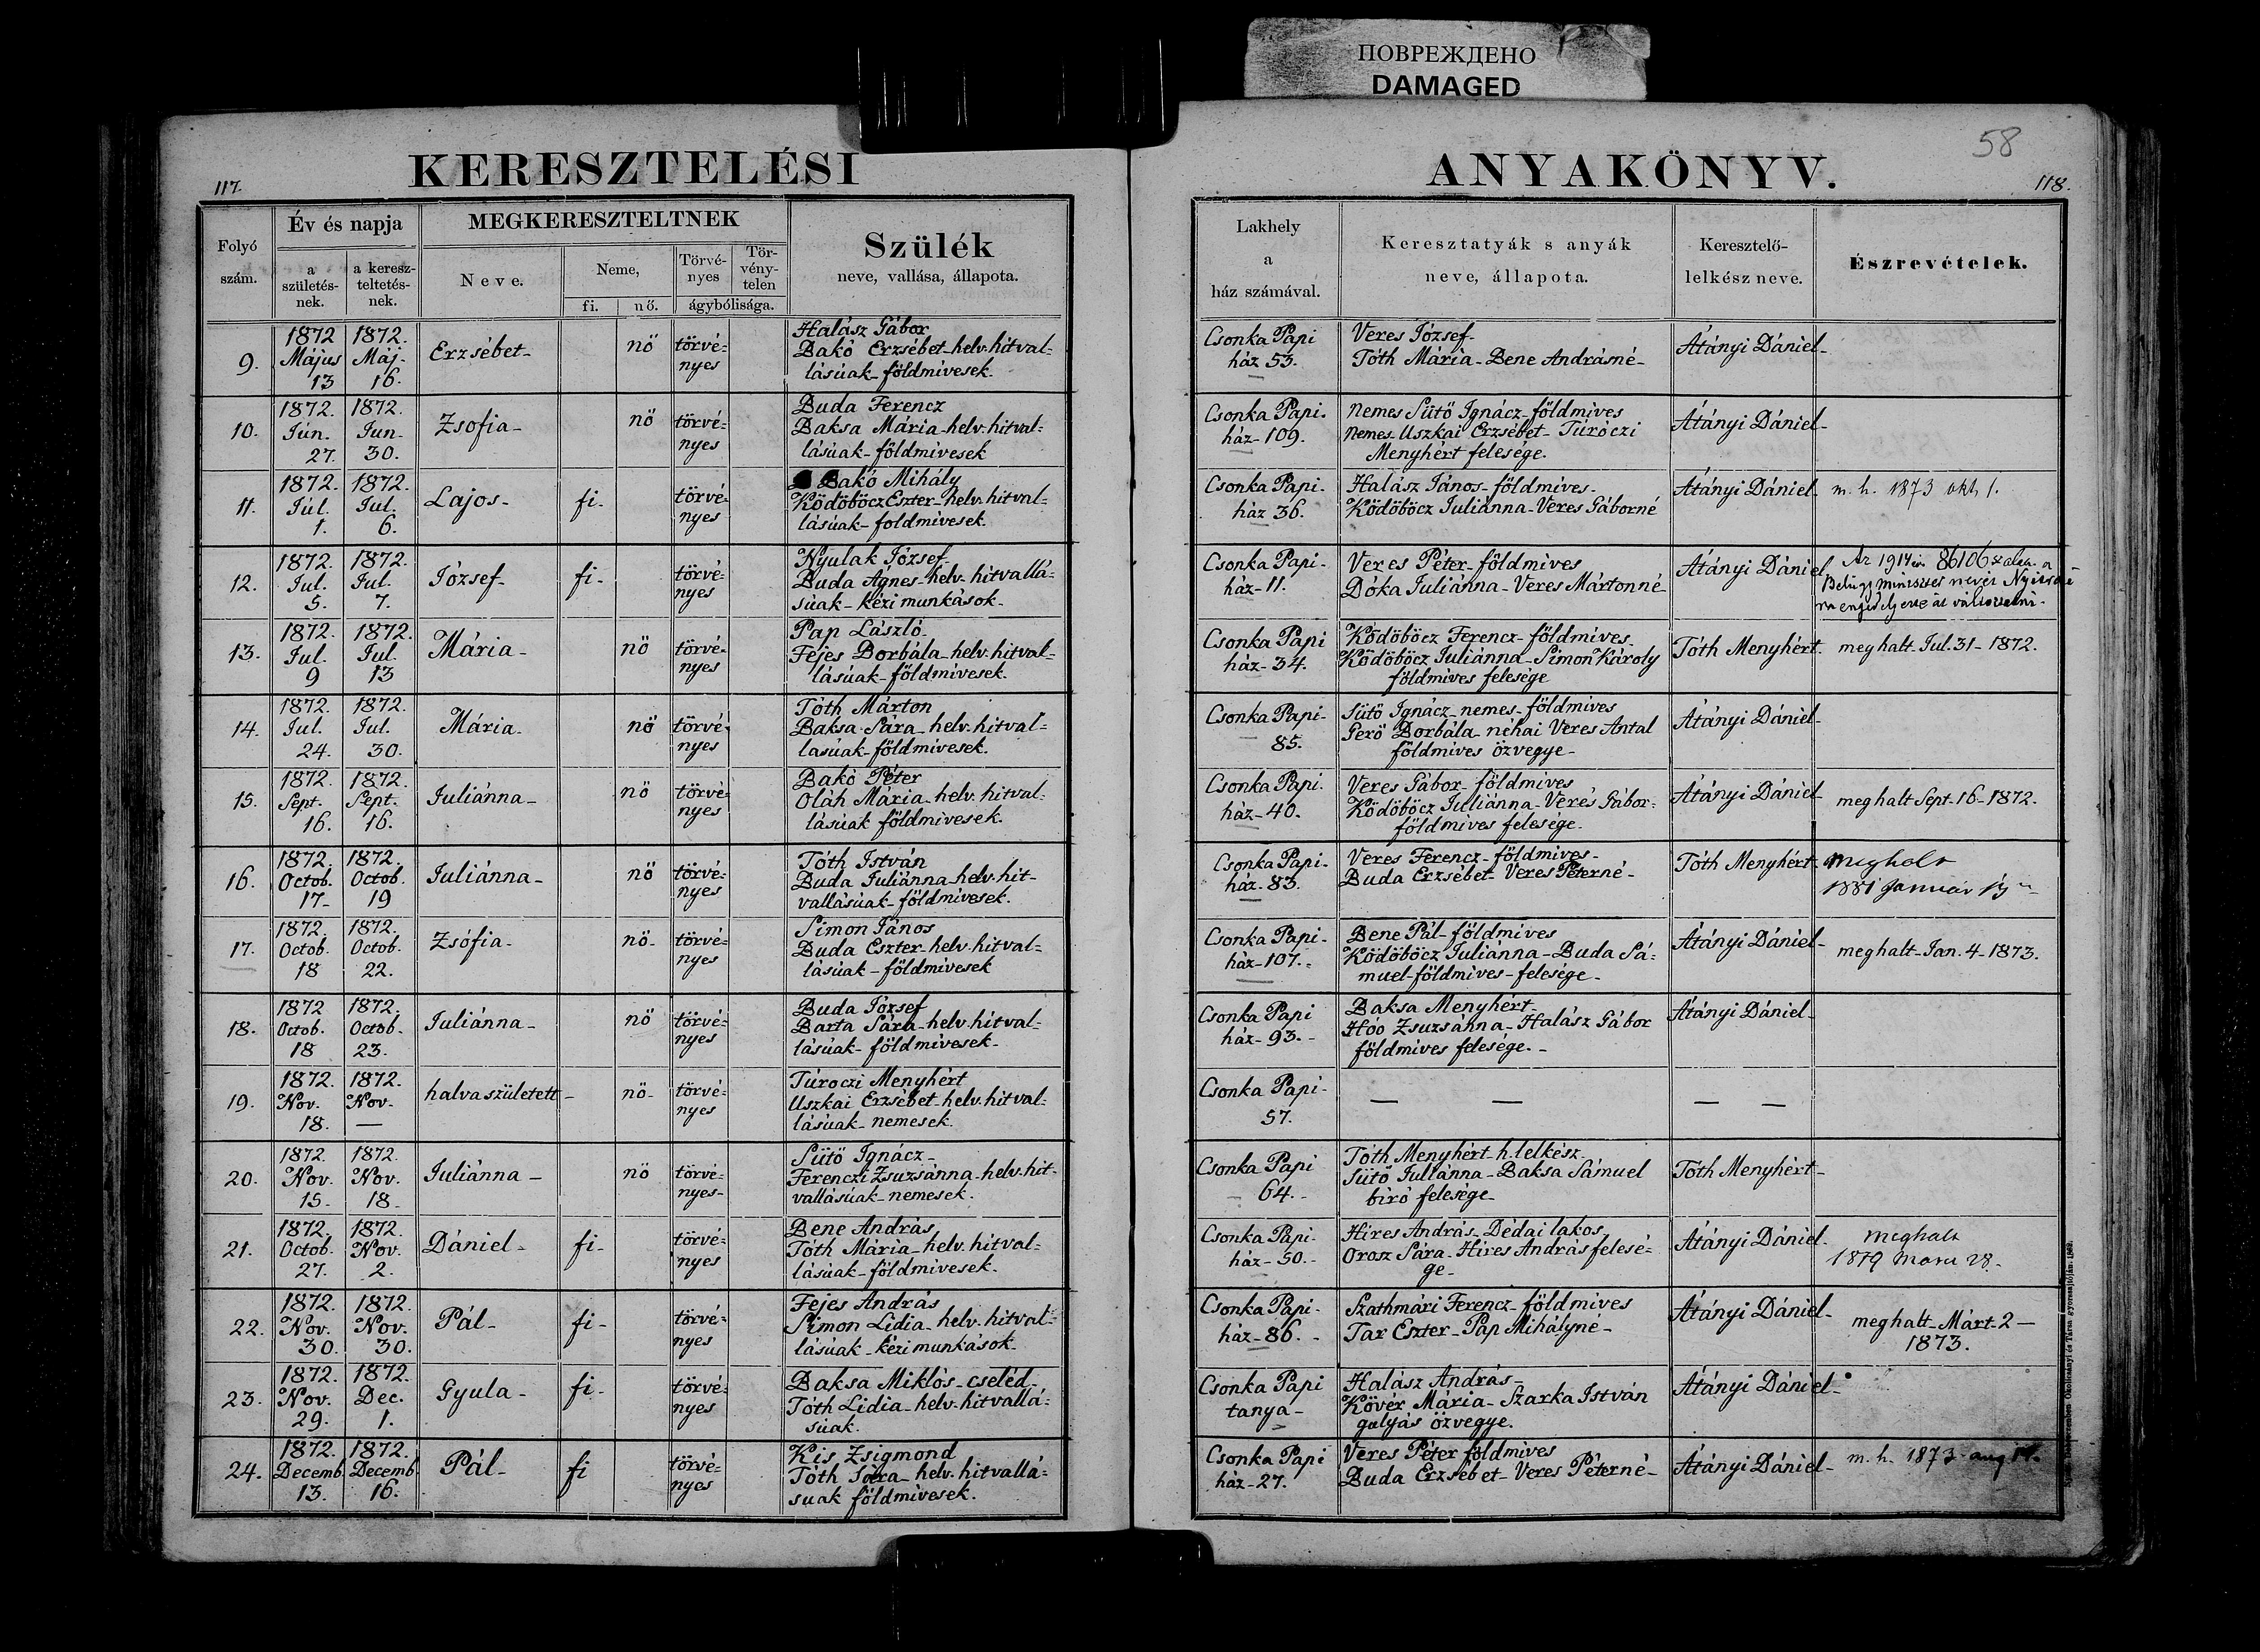 ПОВРЕЖДЕНО
DAMAGED
58
117.
KERESZTELÉSI
ANYAKÖNYV.
118.
Folyó szám.
Év és napja
a születés-nek.
a keresz-teltetés-nek.
MEGKERESZTELTNEK
Neve.
Neme,
fi.
nő.
Törvé-nyes
Tör-vény-telen
ágybólisága.
Szülék
neve, vallása, állapota.
Lakhely
a
ház számával.
Keresztatyák s anyák
neve, állapota.
Keresztelő-
lelkész neve.
Észrevételek.
9.
1872 Május 13
1872. Máj. 16.
Erzsébet-
nő
törvé-nyes
Halász Gábor
Bakó Erzsébet-helv. hitval-
lásúak-földmivesek.
Csonka Papi
ház 53.
Veres József-
Tóth Mária-Bene Andrásné-
Átányi Dániel-
10.
1872. Jún. 27.
1872. Jun. 30.
Zsofia-
nő
törvé=nyes
Buda Ferencz
Baksa Mária-helv. hitval=
lásúak-földmivesek
Csonka Papi.
ház-109.
nemes Sütő Ignácz-földmives
nemes-Uszkai Erzsébet-Túróczi
Menyhért felesége.
Átányi Dániel-
11.
1872. Júl. 1.
1872. Jul. 6.
Lajos-
fi-
törvé=nyes
Bakó Mihály
Ködöböcz Eszter-helv. hitval-
lásúak-foldmivesek.
Csonka Papi-
ház 36.
Halász János-földmives-
Ködöböcz Juliánna-Veres Gáborné
Átányi Dániel-
m. h. 1873 okt 1.
12.
1872. Jul. 5.
1872. Jul. 7.
József-
fi-
törvé=nyes
Nyulak József-
Buda Ágnes-helv. hitvallá-
súak-kézi munkások-
Csonka Papi-
ház-11.
Veres Péter-földmives
Dóka Juliánna-Veres Mártonné
Átányi Dániel
Az 1914 86106 a
miniszter nevét
13.
1872. Jul. 9
1872. Jul. 13
Mária-
nő
törvé=nyes
Pap László-
Fejes Borbála-helv. hitval=
lásúak-földmivesek.
Csonka Papi
ház-34.
Ködöböcz Ferencz-földmives
Ködöböcz Juliánna-Simon Károly
földmives felesége
Tóth Menyhért.
meghalt Jul. 31-1872.
14.
1872. Jul. 24.
1872. Jul. 30.
Mária-
nő
törvé-nyes
Tóth Márton
Baksa Sára-helv. hitval=
lasúak-földmivesek.
Csonka Papi-
85.
Sütő Ignácz-nemes-földmives
Gerő Borbála-néhai Veres Antal
földmives özvegye-
Átányi Dániel-
15.
1872. Sept. 16.
1872. Sept. 16.
Juliánna-
nő
törvé=nyes
Bakó Péter
Oláh Mária-helv. hitval-
lásúak földmivesek.
Csonka Papi.
ház-40.
Veres Gábor-földmives
Ködöböcz Juliánna-Veres Gábor=
földmives felesége.
Átányi Dániel-
meghalt Sept-16-1872.
16.
1872. Octob. 17-
1872. Octob. 19
Juliánna-
nő
törvé=nyes
Tóth István
Buda Juliánna-helv. hit-
vallásúak-földmivesek.
Csonka Papi-
ház-83.
Veres Ferencz-földmives-
Buda Erzsébet-Veres Péterné-
Tóth Menyhért-
meghalt
1881 Január
17.
1872. Octob. 18
1872. Octob. 22.
Zsófia-
nő-
törvé=nyes
Simon János
Buda Eszter-helv. hitval=
lásúak-földmivesek
Csonka Papi-
ház-107.-
Bene Pál-földmives
Ködöböcz Juliánna-Buda Sá=
muel-földmives-felesége-
Átányi Dániel-
meghalt-Jan. 4-1873.
18.
1872 Octob. 18
1872. Octob. 23.
Juliánna-
nő
törvé=nyes
Buda József
Barta Sára-helv. hitval-
lásúak-földmivesek-
Csonka Papi
ház-93.-
Baksa Menyhért-
Hóo Zsuzsánna-Halász Gábor
földmives felesége.-
Átányi Dániel-
19.
1872. Nov. 18.
1872. Nov. —
halva született-
nő-
törvé=nyes
Túroczi Menyhért
Uszkai Erzsébet-helv. hitval=
lásúak-nemesek.
Csonka Papi-
57.
— —
— —
20.
1872. Nov. 15-
1872. Nov. 18-
Juliánna-
nő
törvé=nyes-
Sütő Ignácz-
Ferenczi Zsuzsánna-helv. hit-
vallásúak-nemesek.
Csonka Papi
64.-
Tóth Menyhért-h. lelkész-
Sütő Juliánna-Baksa Sámuel
biró felesége-
Tóth Menyhért-
21.
1872. Octob. 27.
1872. Nov. 2.
Dániel-
fi-
törvé=nyes
Bene András
Tóth Mária-helv. hitval=
lásúak-földmivesek.
Csonka Papi-
ház-50.-
Hires András-Dédai lakos
Orosz Sára-Hires András felesé=
ge-
Átányi Dániel-
meghalt
1879 28.
22.
1872. Nov. 30.
1872. Nov. 30.
Pál-
fi-
törvé-nyes
Fejes András
Simon Lidia-helv. hitval=
lásúak-kézi munkások-
Csonka Papi-
ház-86.-
Szathmári Ferencz-földmives
Tar Eszter-Pap Mihályné-
Átányi Dániel-
meghalt-Márt-2-
1873.
23.
1872. Nov. 29.
1872. Dec. 1.
Gyula-
fi-
törvé-nyes
Baksa Miklós-cseléd-
Tóth Lidia-helv. hitvallá=
súak.
Csonka Papi
tanya-
Halász András-
Kövér Mária-Szarka István
gulyás özvegye.
Átányi Dániel-
24.
1872. Decemb. 13.
1872. Decemb. 16.
Pál-
fi
törvé-nyes
Kis Zsigmond
Tóth Sára-helv. hitvallá=
suak földmivesek.
Csonka Papi
ház-27.
Veres Péter földmives
Buda Erzsébet-Veres Péterné-
Átányi Dániel-
m. h. 1873. aug